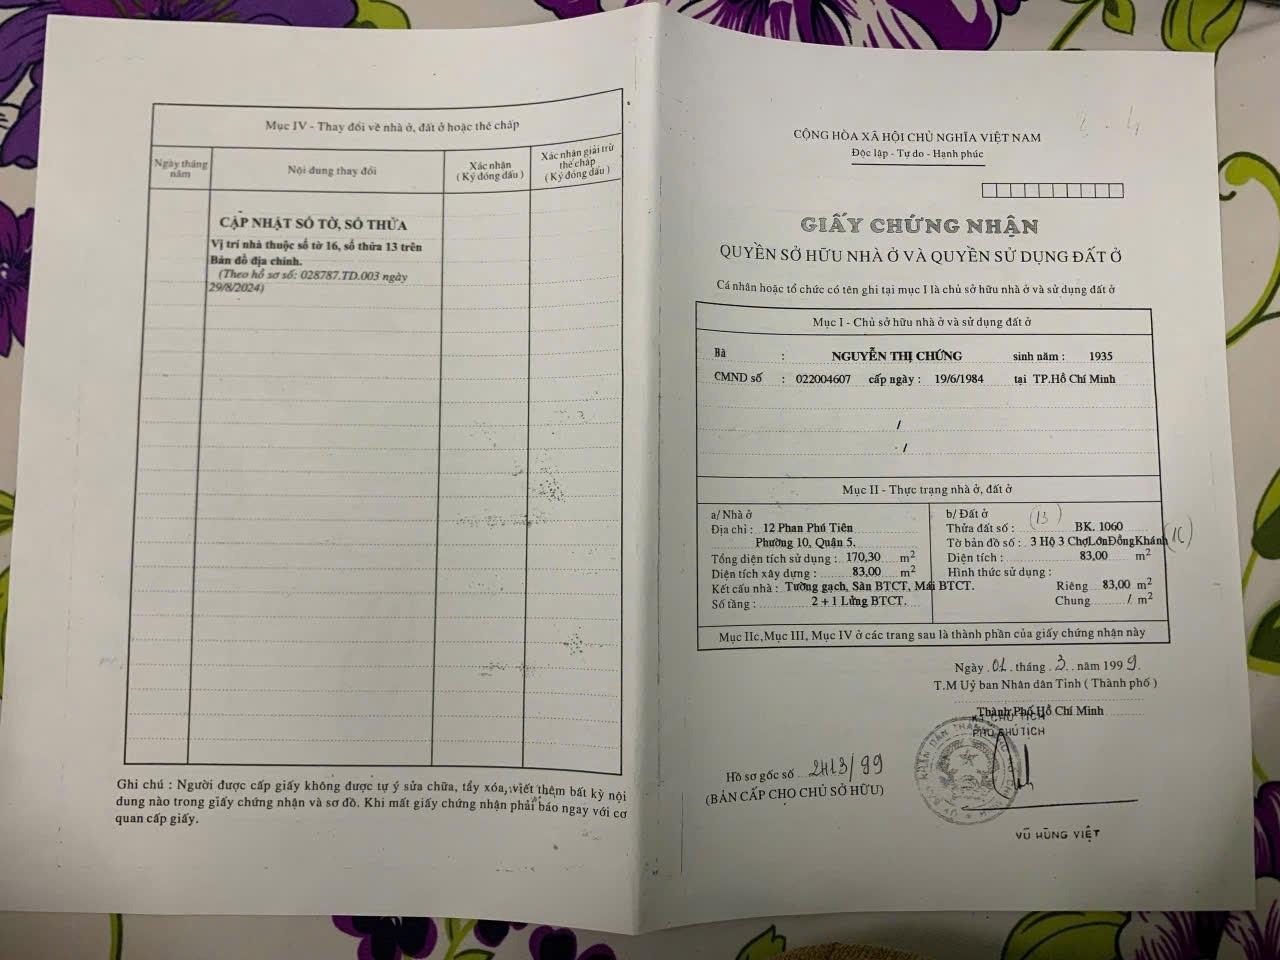 Mục IV - Thay đổi về nhà ở, đất ở hoặc thế chấp
Ngày tháng năm
Nội dung thay đổi
Xác nhận
( Ký đóng dấu )
Xác nhận giải trừ
thế chấp
( Ký đóng dấu )
CẬP NHẬT SỐ TỜ, SỐ THỬA
Vị trí nhà thuộc số tờ 16, số thửa 13 trên
Bản đồ địa chính.
(Theo hồ sơ số: 028787.TD.003 ngày
29/8/2024)
Ghi chú : Người được cấp giấy không được tự ý sửa chữa, tẩy xóa, viết thêm bất kỳ nội
dung nào trong giấy chứng nhận và sơ đồ. Khi mất giấy chứng nhận phải báo ngay với cơ
quan cấp giấy.
CỘNG HÒA XÃ HỘI CHỦ NGHĨA VIỆT NAM
Độc lập - Tự do - Hạnh phúc
GIẤY CHỨNG NHẬN
QUYỀN SỞ HỮU NHÀ Ở VÀ QUYỀN SỬ DỤNG ĐẤT Ở
Cá nhân hoặc tổ chức có tên ghi tại mục I là chủ sở hữu nhà ở và sử dụng đất ở
Mục I - Chủ sở hữu nhà ở và sử dụng đất ở
Bà : NGUYỄN THỊ CHỨNG sinh năm : 1935
CMND số : 022004607 cấp ngày : 19/6/1984 tại TP.Hồ Chí Minh
/
/
Mục II - Thực trạng nhà ở, đất ở
a/ Nhà ở
Địa chỉ : 12 Phan Phú Tiên
Phường 10, Quận 5.
Tổng diện tích sử dụng : 170,30 m2
Diện tích xây dựng : 83,00 m2
Kết cấu nhà : Tường gạch, Sàn BTCT, Mái BTCT.
Số tầng : 2 + 1 Lửng BTCT.
b/ Đất ở (13)
Thửa đất số : BK. 1060
Tờ bản đồ số : 3 Hộ 3 ChợLớnĐồngKhánh (16)
Diện tích : 83,00 m2
Hình thức sử dụng :
Riêng 83,00 m2
Chung / m2
Mục IIc,Mục III, Mục IV ở các trang sau là thành phần của giấy chứng nhận này
Ngày 01 tháng 3 năm 1999.
T.M Uỷ ban Nhân dân Tỉnh ( Thành phố )
Thành Phố Hồ Chí Minh
KT CHỦ TỊCH
PHÓ CHỦ TỊCH
Hồ sơ gốc số 2413/99
(BẢN CẤP CHO CHỦ SỞ HỮU)
VŨ HÙNG VIỆT